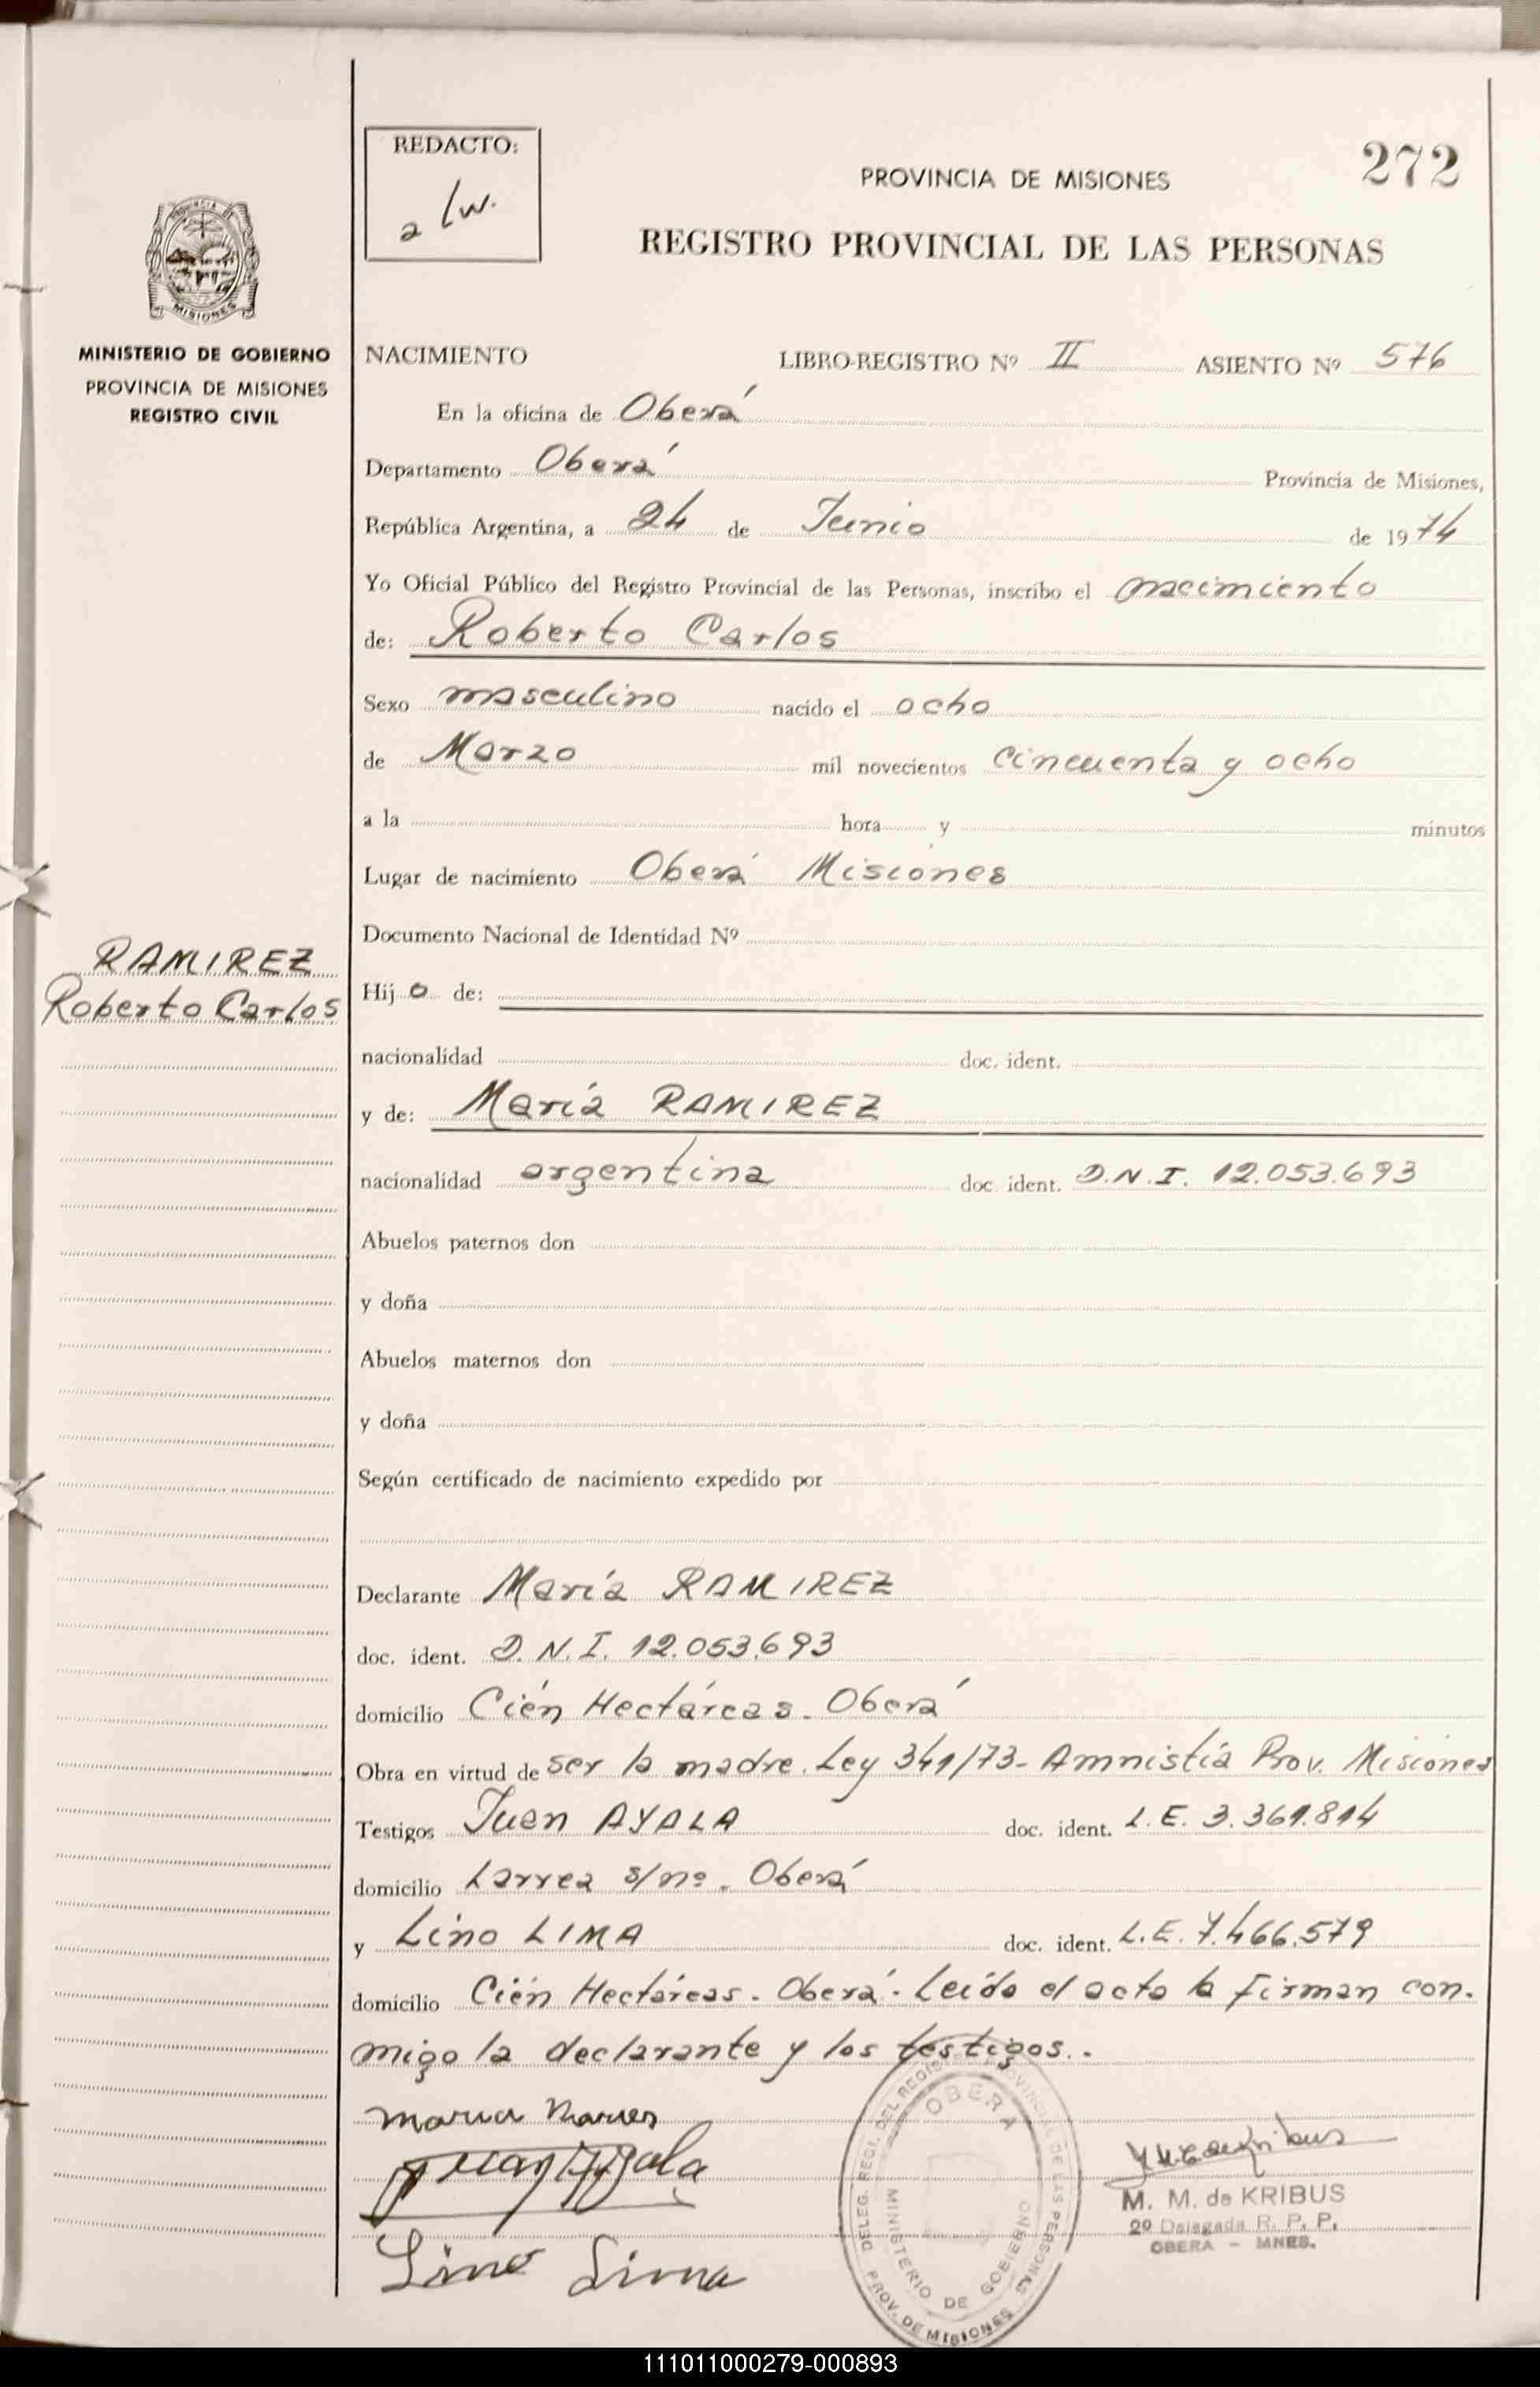 REDACTO:
272
PROVINCIA DE MISIONES
REGISTRO PROVINCIAL DE LAS PERSONAS
MISIONES
MINISTERIO DE GOBIERNO
PROVINCIA DE MISIONES
REGISTRO CIVIL
NACIMIENTO LIBRO-REGISTRO Nº II ASIENTO Nº 576
En la oficina de Oberá
Departamento Oberá Provincia de Misiones,
República Argentina, a 24 de Junio de 1974
Yo Oficial Público del Registro Provincial de las Personas, inscribo el nacimiento
de: Roberto Carlos
Sexo masculino nacido el ocho
de Marzo mil novecientos cincuenta y ocho
a la hora y minutos
Lugar de nacimiento Oberá Misiones
Documento Nacional de Identidad Nº
RAMIREZ
Roberto Carlos
Hijo de:
nacionalidad doc. ident.
y de: María RAMIREZ
nacionalidad argentina doc. ident. D.N.I. 12.053.693
Abuelos paternos don
y doña
Abuelos maternos don
y doña
Según certificado de nacimiento expedido por
Declarante María RAMIREZ
doc. ident. D.N.I. 12.053.693
domicilio Cién Hectáreas - Oberá
Obra en virtud de ser la madre. Ley 341/73 - Amnistía Prov. Misiones
Testigos Juan AYALA doc. ident. L.E. 3.361.814
domicilio Larrea s/nº - Oberá
y Lino LIMA doc. ident. L.E. 7.466.579
domicilio Cién Hectáreas - Oberá - Leído el acto la firman con-
migo la declarante y los testigos.-
Juan Ayala
Lino Lima
DELEG. REGI. DEL REGISTRO PROVINCIAL DE LAS PERSONAS
OBERA
MINISTERIO DE GOBIERNO
PROV. DE MISIONES
M. M. de KRIBUS
2º Delegada R. P. P.
OBERA - MNES.
111011000279-000893